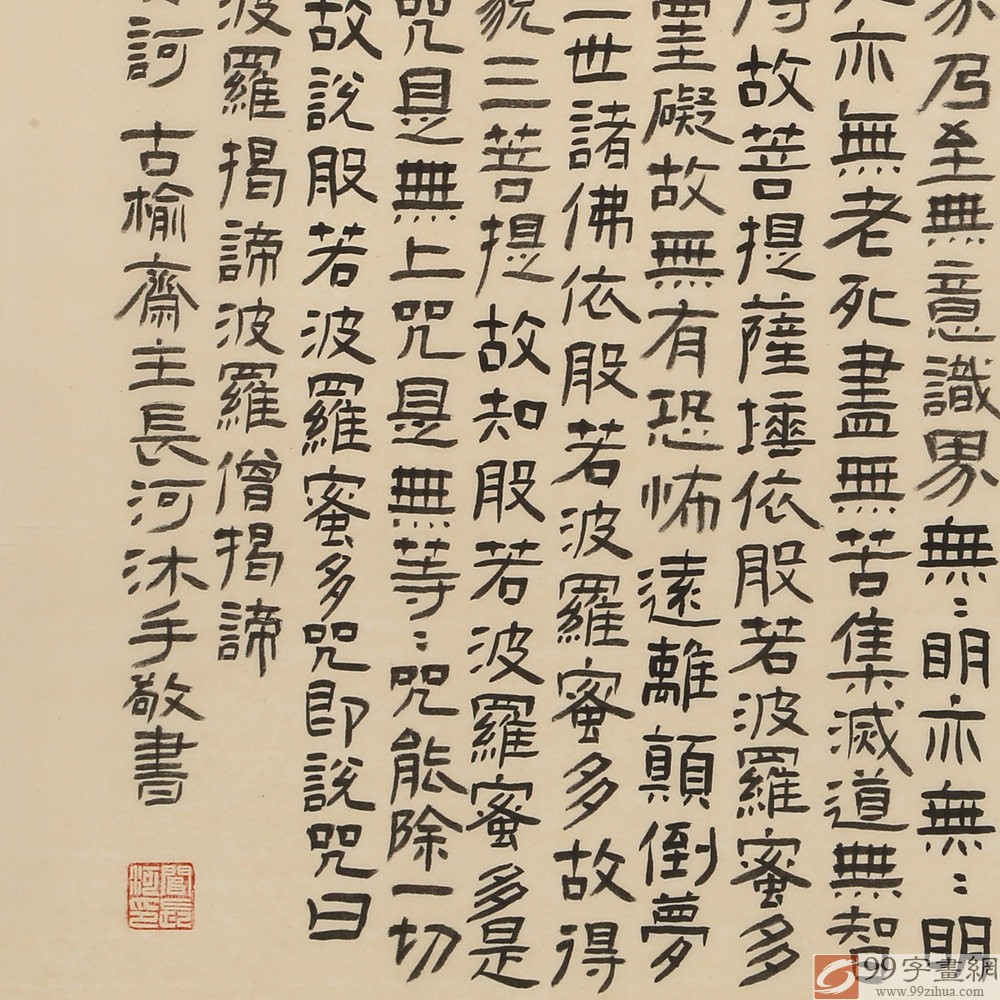 界乃至無意識界無:明亦無:明
亦無老死盡無苦集滅道無智
得故菩提薩埵依般若波羅蜜多
罣礙故無有恐怖遠離顛倒夢
三世諸佛依般若波羅蜜多故得
藐三菩提故知般若波羅蜜多是
咒是無上咒是無等:咒能除一切
故說般若波羅蜜多咒即說咒曰
波羅揭諦波羅僧揭諦
訶 古榆齋主長河沐手敬書
99字畫網
www.99zihua.com